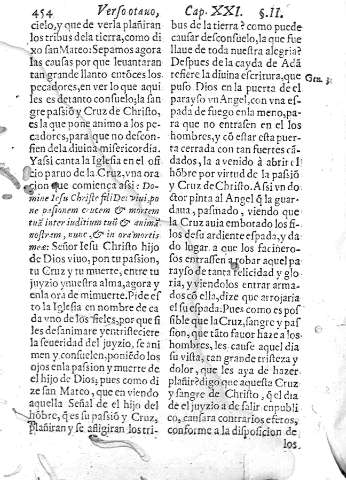 454 Verso otauo, Cap. XXI. §. II.
cielo, y que de verla plañiran
los tribus dela tierra, como di
xo san Mateo: Sepamos agora
las causas por que leuantaran
tan grande llanto entõces los
pecadores, en ver lo que aqui
les es de tanto consuelo; la san
gre passiõ y Cruz de Christo,
es la que pone animo a los pe-
cadores, para que no descon-
fien de la diuina misericordia.
Y assi canta la Iglesia en el ofi
cio paruo de la Cruz, vna ora
cion que comiença assi: Do-
mine Iesu Christe fili Dei viui, po
ne passionem crucem & mortem
tuã inter iuditium tuũ & animã
nostram, nunc & in ora mortis
meæ: Señor Iesu Christo hijo
de Dios viuo, pon tu passion,
tu Cruz y tu muerte, entre tu
juyzio y nuestra alma, agora y
en la ora de mi muerte. Pide es
to la Iglesia en nombre de ca
da vno de los fieles, por que si
les desanimare y entristeciere
la seueridad del juyzio, se ani
men y consuelen, poniẽdo los
ojos en la passion y muerte de
el hijo de Dios; pues como di
ze san Mateo, que en viendo
aquella Señal de el hijo del
hõbre, q̃ es su passiõ y Cruz,
plañiran y se afligiran los tri-
bus de la tierra? como puede
causar desconsuelo, la que fue
llaue de toda nuestra alegria?
Despues de la cayda de Adã
refiere la diuina escritura, que
Gen. 3.
puso Dios en la puerta de el
parayso vn Angel, con vna es
pada de fuego en la meno, pa
ra que no entrasen en el los
hombres, y cõ estar esta puer
ta cerrada con tan fuertes cã
dados, la a venido à abrir el
hõbre por virtud de la passiõ
y Cruz de Christo. Assi vn do
ctor pinta al Angel q̃ la guar
daua, pasmado, viendo que
la Cruz auia embotado los fi
los de su ardiente espada, y da
do lugar a que los facinero-
sos entrassen a robar aquel pa
rayso de tanta felicidad y glo
ria, y viendolos entrar arma-
dos cõ ella, dize que arrojaria
el su espada. Pues como es pos
sible que la Cruz, sangre y pas
sion, que tãto fauor haze a los
hombres, les cause aquel dia
su vista, tan grande tristeza y
dolor, que les aya de hazer
plañir? digo que aquesta Cruz
y sangre de Christo, q̃ el dia
de el juyzio a de salir en publi
co, causara contrarios efetos,
conforme a la disposicion de
los